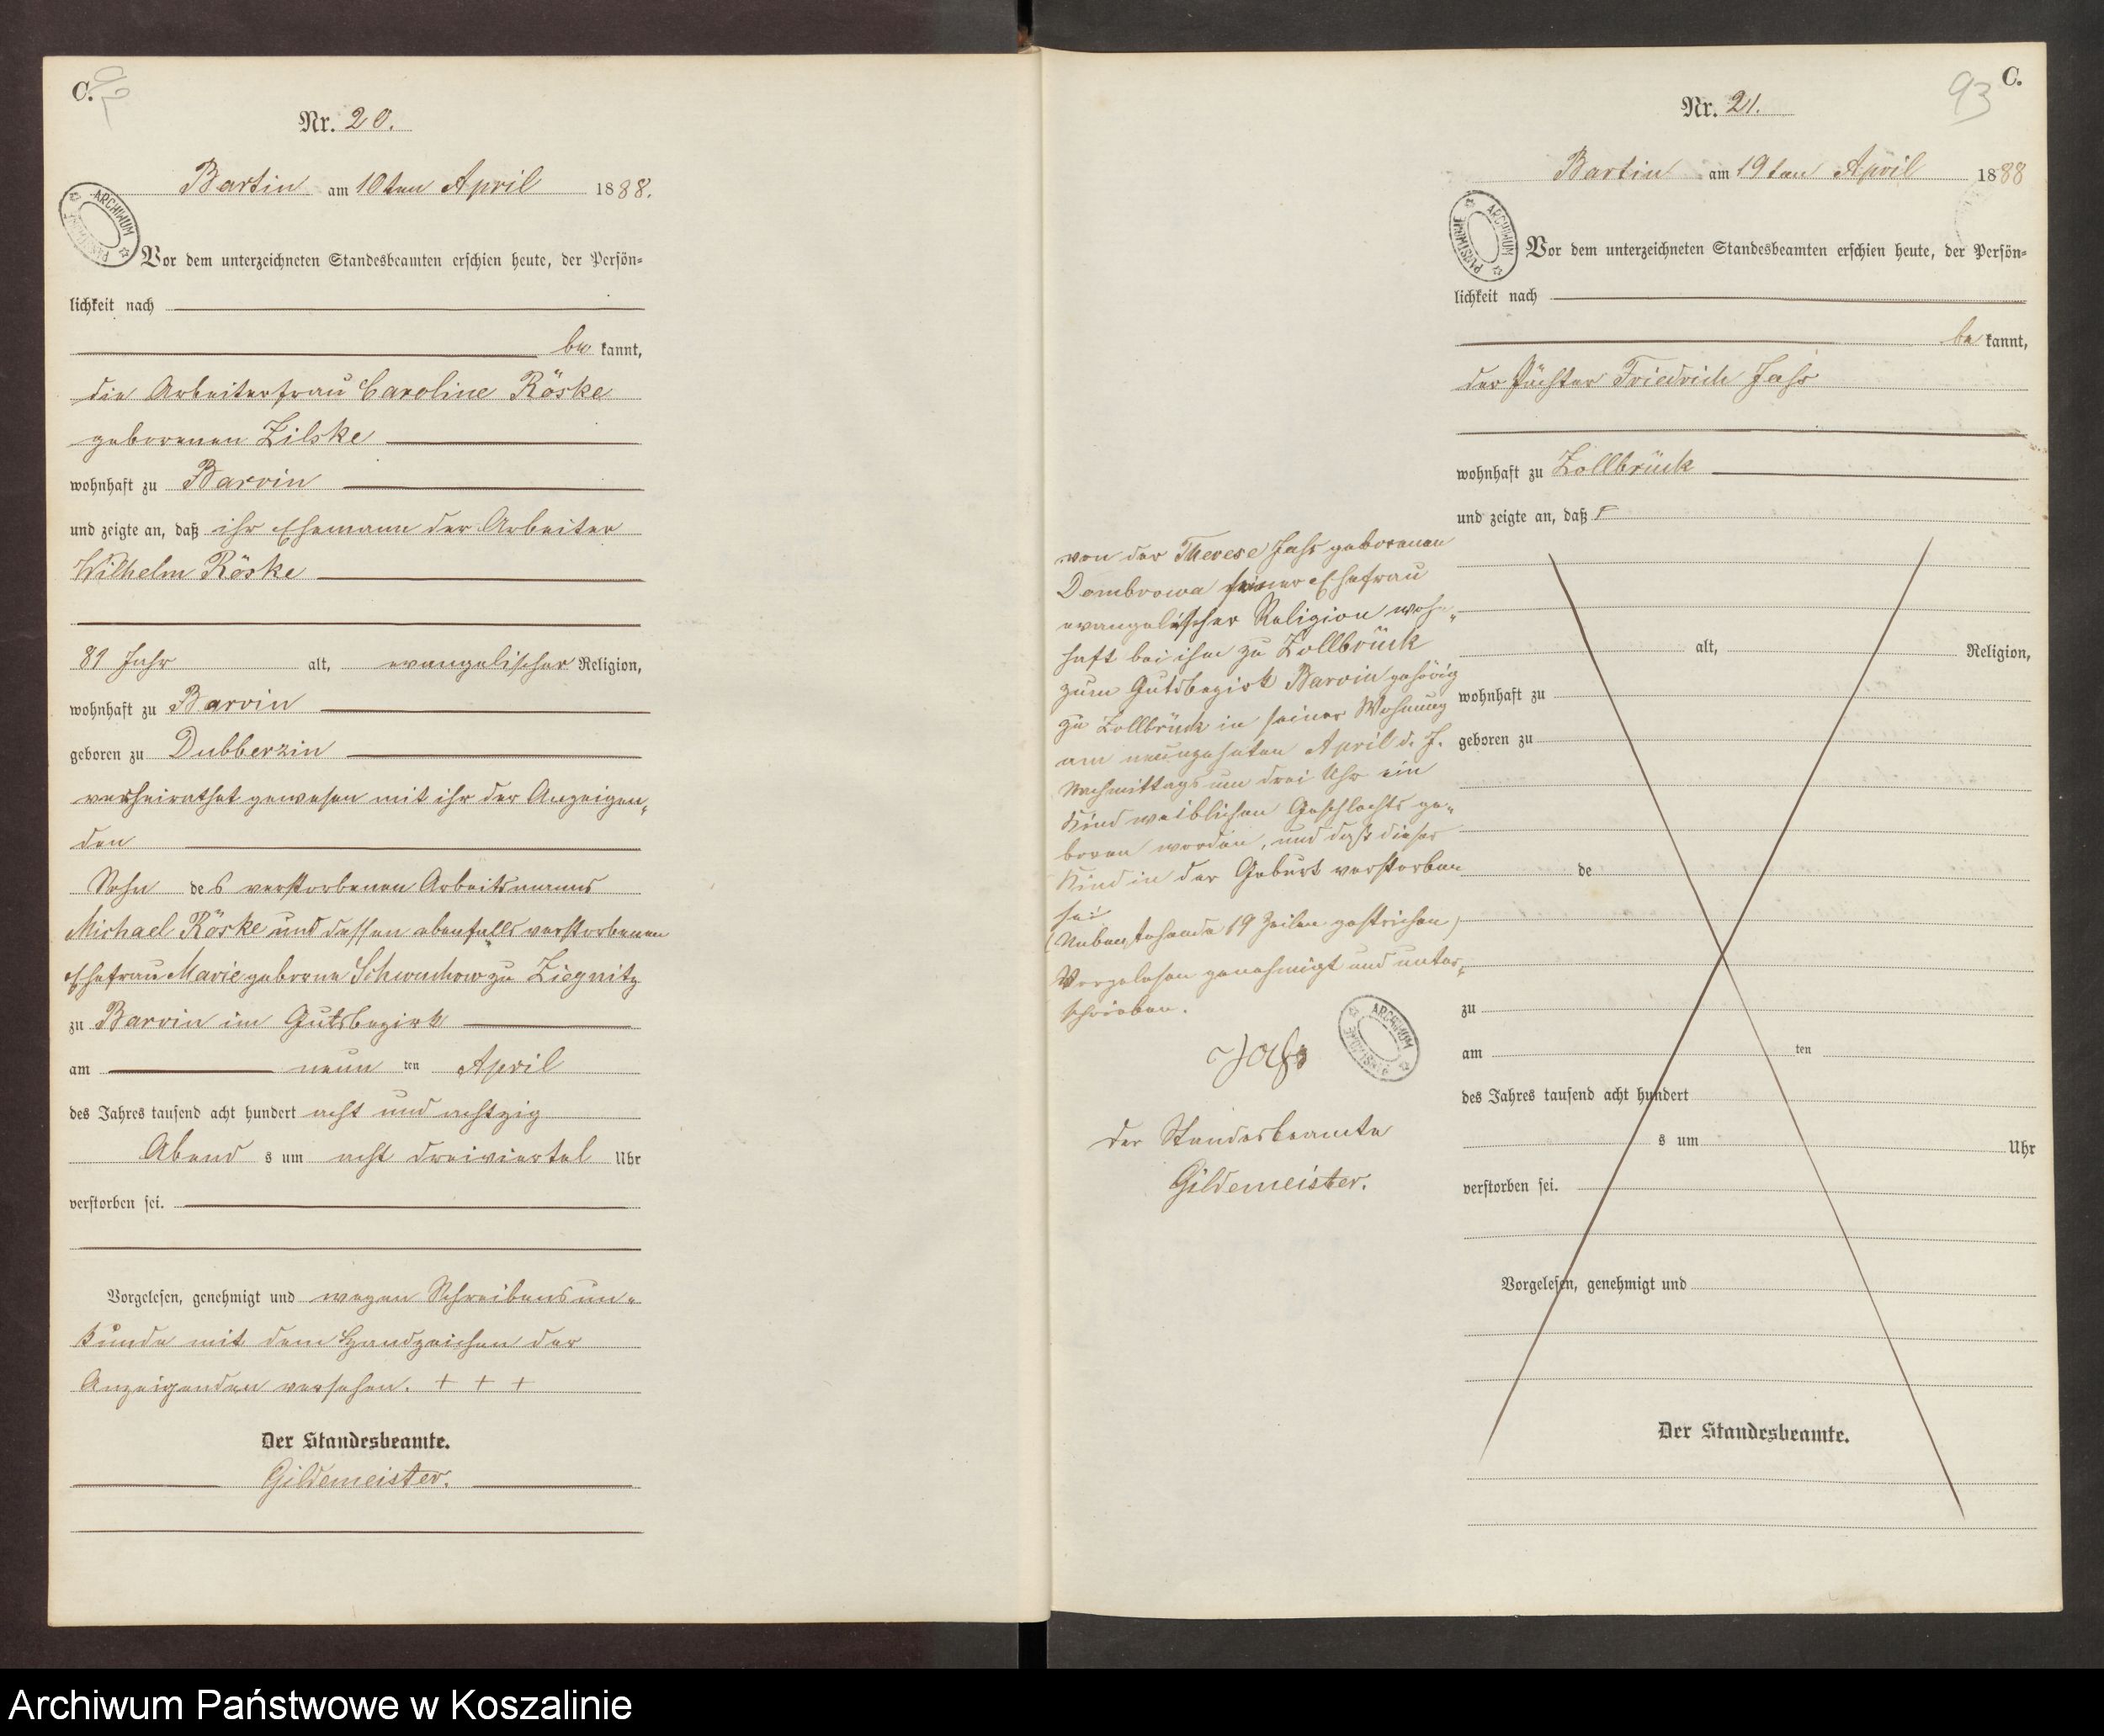 C.
Nr. 20.
Bartin am 10ten April 1888.
ARCHIWUM PAŃSTWOWE
Vor dem unterzeichneten Standesbeamten erschien heute, der Persön=
lichkeit nach
be kannt,
die Arbeiterfrau Caroline Röske
geborenen Zilske
wohnhaft zu Barvin
und zeigte an, daß ihr Ehemann der Arbeiter
Wilhelm Röske
81 Jahr alt, evangelischer Religion,
wohnhaft zu Barvin
geboren zu Dubberzin
verheirathet gewesen mit ihr der Anzeigen„
den
Sohn des verstorbenen Arbeitsmanns
Michael Röske und dessen ebenfalls verstorbenen
Ehefrau Marie geborne Schwuchow zu Ziegnitz
zu Barvin im Gutsbezirk
am neun ten April
des Jahres tausend acht hundert acht und achtzig
Abend s um acht dreiviertel Uhr
verstorben sei.
Vorgelesen, genehmigt und wegen Schreibensun„
kunde mit dem Handzeichen der
Anzeigenden versehen. + + +
Der Standesbeamte.
Gildemeister.
93
C.
Nr. 21.
Bartin am 19ten April 1888
ARCHIWUM PAŃSTWOWE
Vor dem unterzeichneten Standesbeamten erschien heute, der Persön=
lichkeit nach
be kannt,
der Pächter Friedrich Jahs
wohnhaft zu Zollbrück
und zeigte an, daß
von der Therese Jahs geborenen
Dombrowa seiner Ehefrau
evangelischer Religion wohn„
haft bei ihm zu Zollbrück
zum Gutsbezirk Barvin gehörig
zu Zollbrück in seiner Wohnung
am neunzehnten April d. J.
Nachmittags um drei Uhr ein
Kind weiblichen Geschlechts ge„
boren worden, und daß dieses
Kind in der Geburt verstorben
sei
(Nebenstehende 19 Zeilen gestrichen)
Vorgelesen genehmigt und unter„
schrieben.
Jahs
ARCHIWUM PAŃSTWOWE
Der Standesbeamte
Gildemeister.
alt, Religion,
wohnhaft zu
geboren zu
de
zu
am ten
des Jahres tausend acht hundert
s um Uhr
verstorben sei.
Vorgelesen, genehmigt und
Der Standesbeamte.
Archiwum Państwowe w Koszalinie